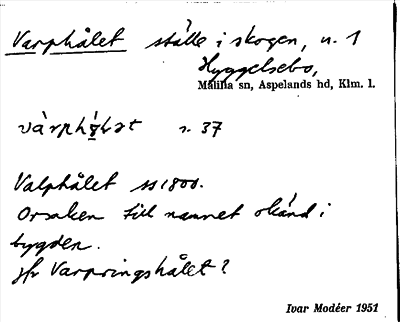 Varphålet ställe i skogen, n. 1
Hyggelsebo,
Målilla sn, Aspelands hd, Klm. l.
s. 37
Valphålet ss 1800.
Orsaken till namnet okänd i
bygden.
Jfr Varpringshålet?
Ivar Modéer 1951